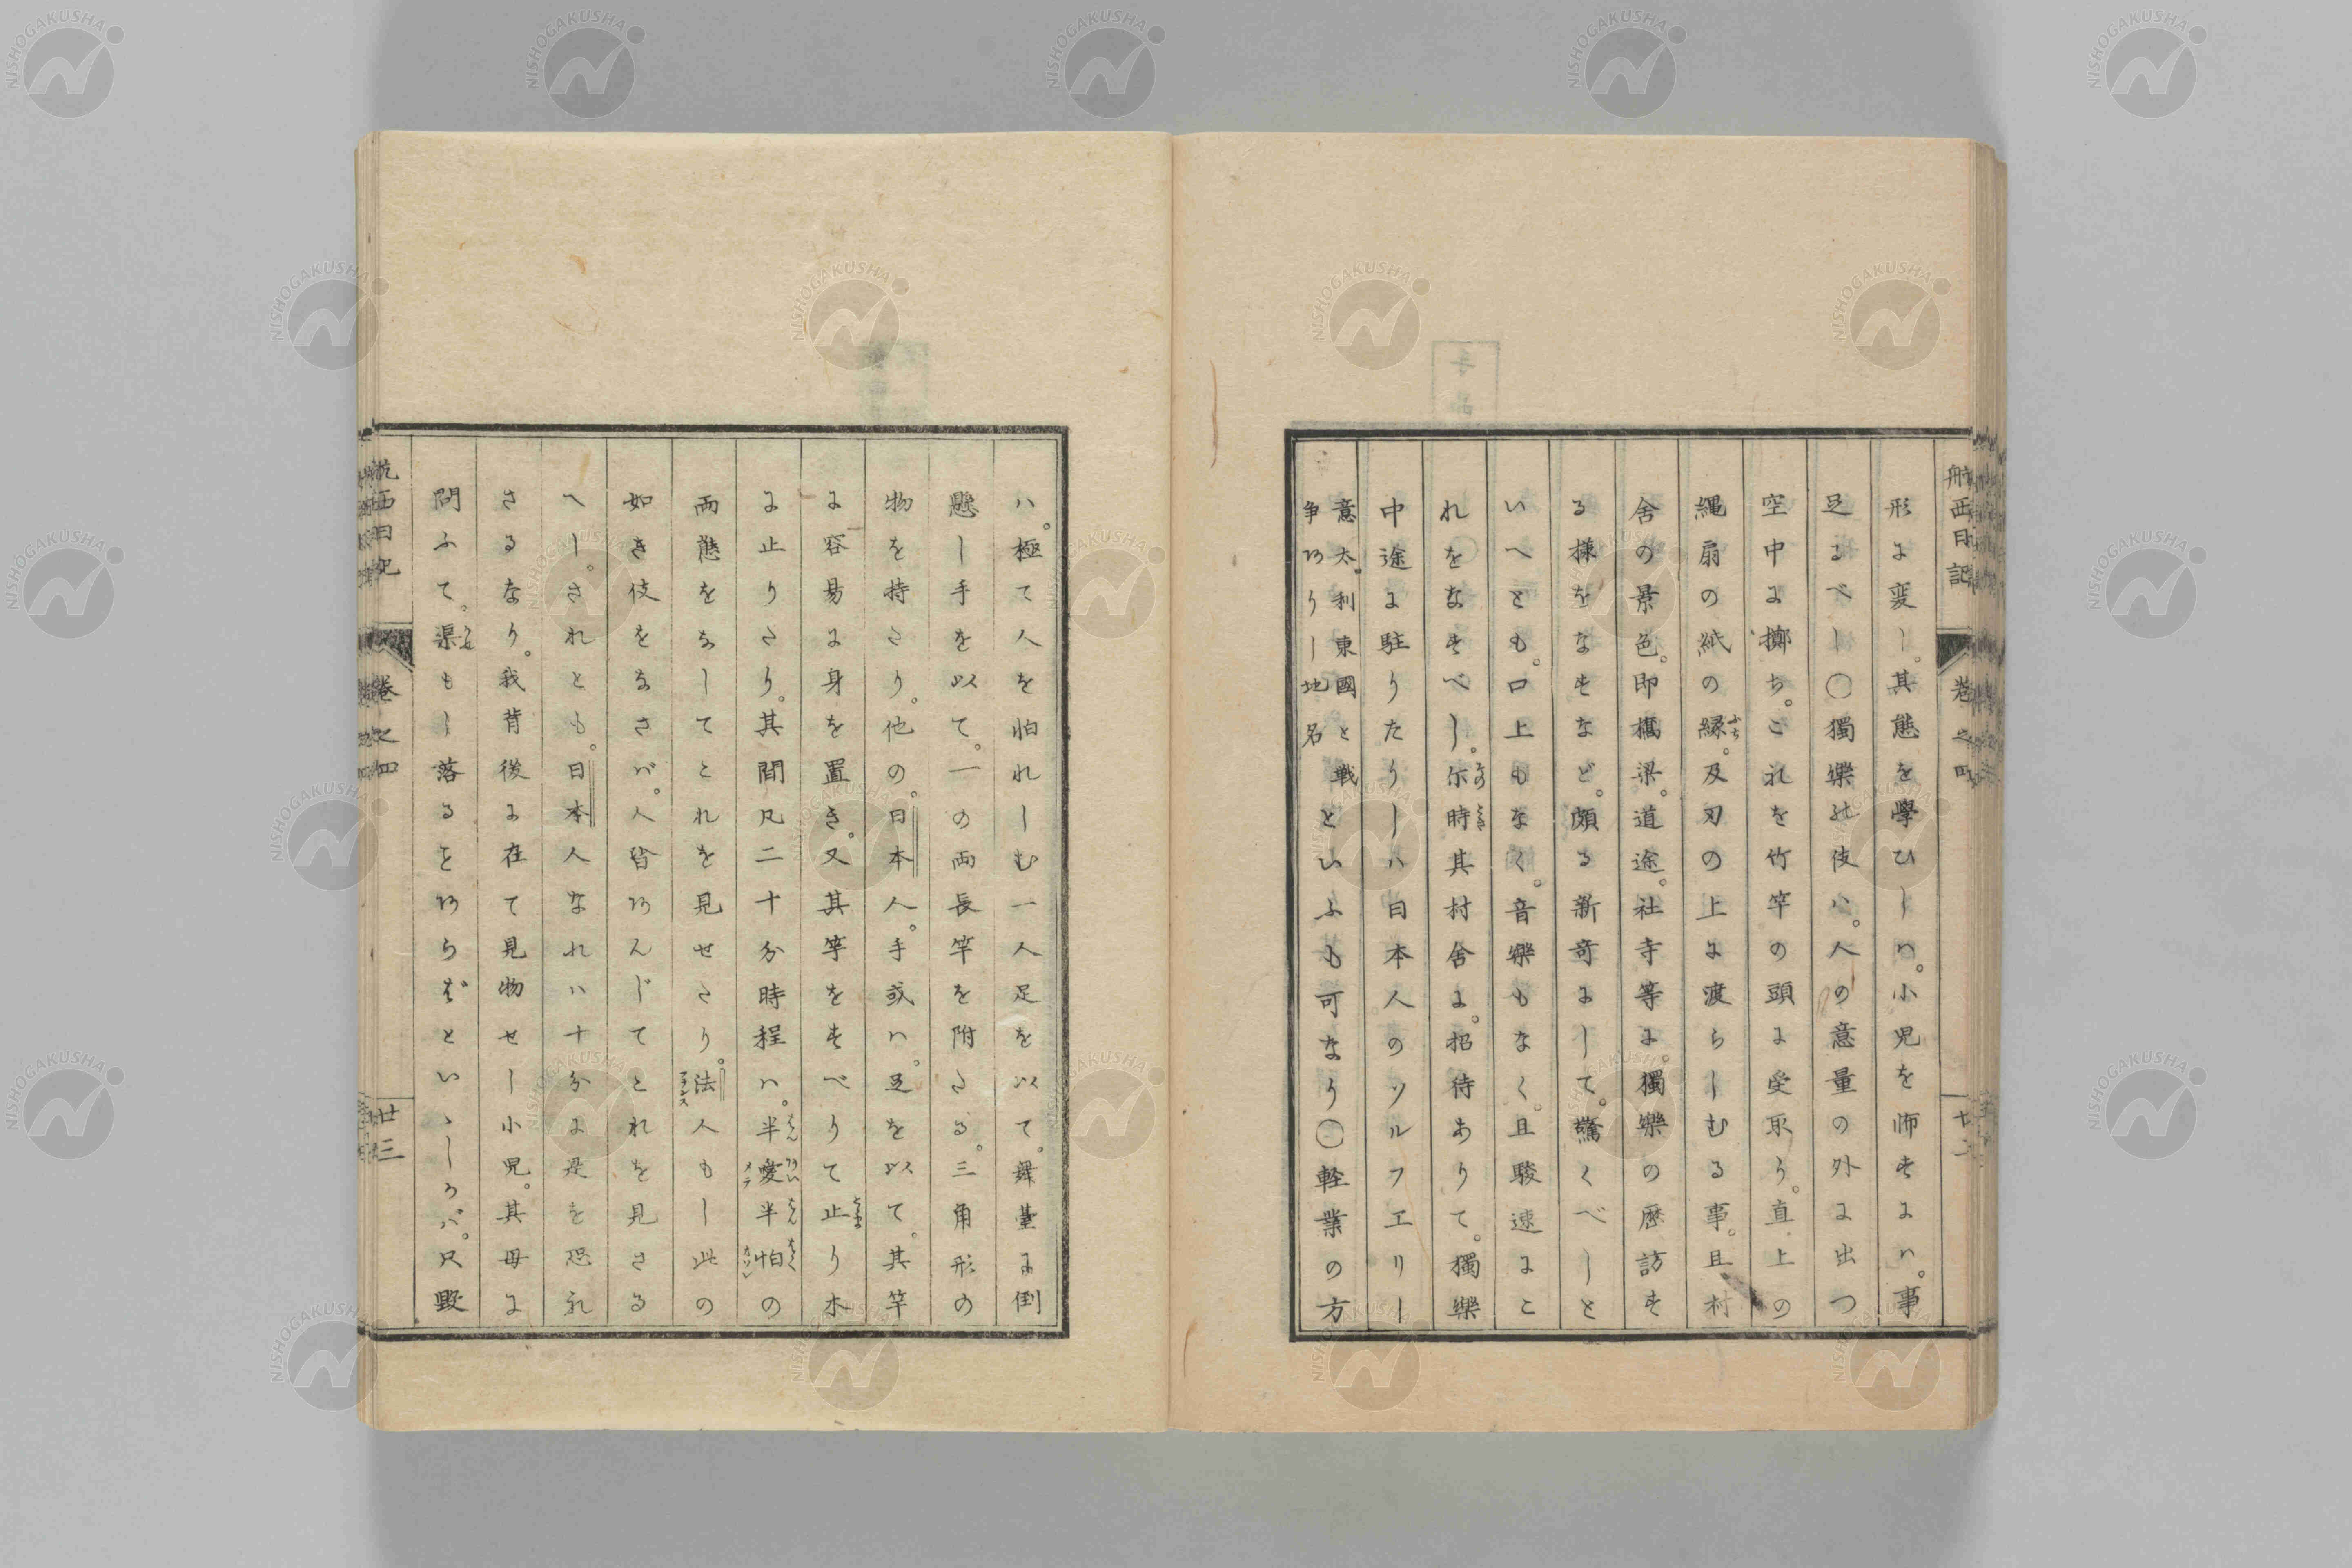 航西日記
巻之四
廿二
形に変し。其態を學ひしハ。小児を師せにハ。事
足るべし〇獨樂の伎ハ。人の意量の外に出つ
空中に擲ち。これを竹竿の頭に受取り。直上の
縄扇の紙の縁。及刃の上に渡らしむる事。且村
ふち
舎の景色。即橋梁。道途。社寺等に。獨樂の歴訪す
る様をなすなど。頗る新奇にして。驚くべしと
いへとも。口上もなく。音樂もなく。且駿速にこ
れをなすべし。尓時其村舎に。招待ありて。獨樂
その とき
中途に駐りたりしハ日本人のソルフエリー
意太利東國と戦
争ありし地名
といふも可なり〇軽業の方
ハ。極て人を怕れしむ一人足を以て。舞臺に倒
懸し手を以て。一の両長竿を附たる。三角形の
物を持たり。他の。日本人。手或ハ。足を以て。其竿
に容易に身を置き。又其竿をすべりて止り木
とま
に止りたり。其間凡二十分時程ハ。半愛半怕の
はん あい はん はく
両態をなしてこれを見せたり。法人もし此の
フランス
如き伎をなさバ。人皆あんじてこれを見さる
へし。されとも。日本人なれハ十分に是を恐れ
さるなり。我背後に在て見物せし小児。其母に
問ふて。渠もし落るをあらずといゝしかバ。只黙
航西日記
巻之四
廿三
NISHOGAKUSHA